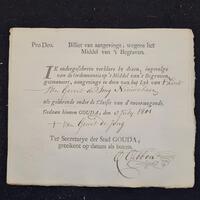 Pro Deo. Billet van aangevinge, wegens het
Middel van 't Begraven.
IK ondergeschreven verklare te doen, ingevolge
van de Ordonnantie op 't Middel van 't Begraven,
geemaneert, aangevinge te doen van het Lyk van
Van Gerrit de Jong
als gehoorende onder de Classis van d'onvermogende.
Gedaan binnen GOUDA, den July 1801
Gerrit de Jong
Ter Secretarye der Stad GOUDA,
geteekent op datum als boven.